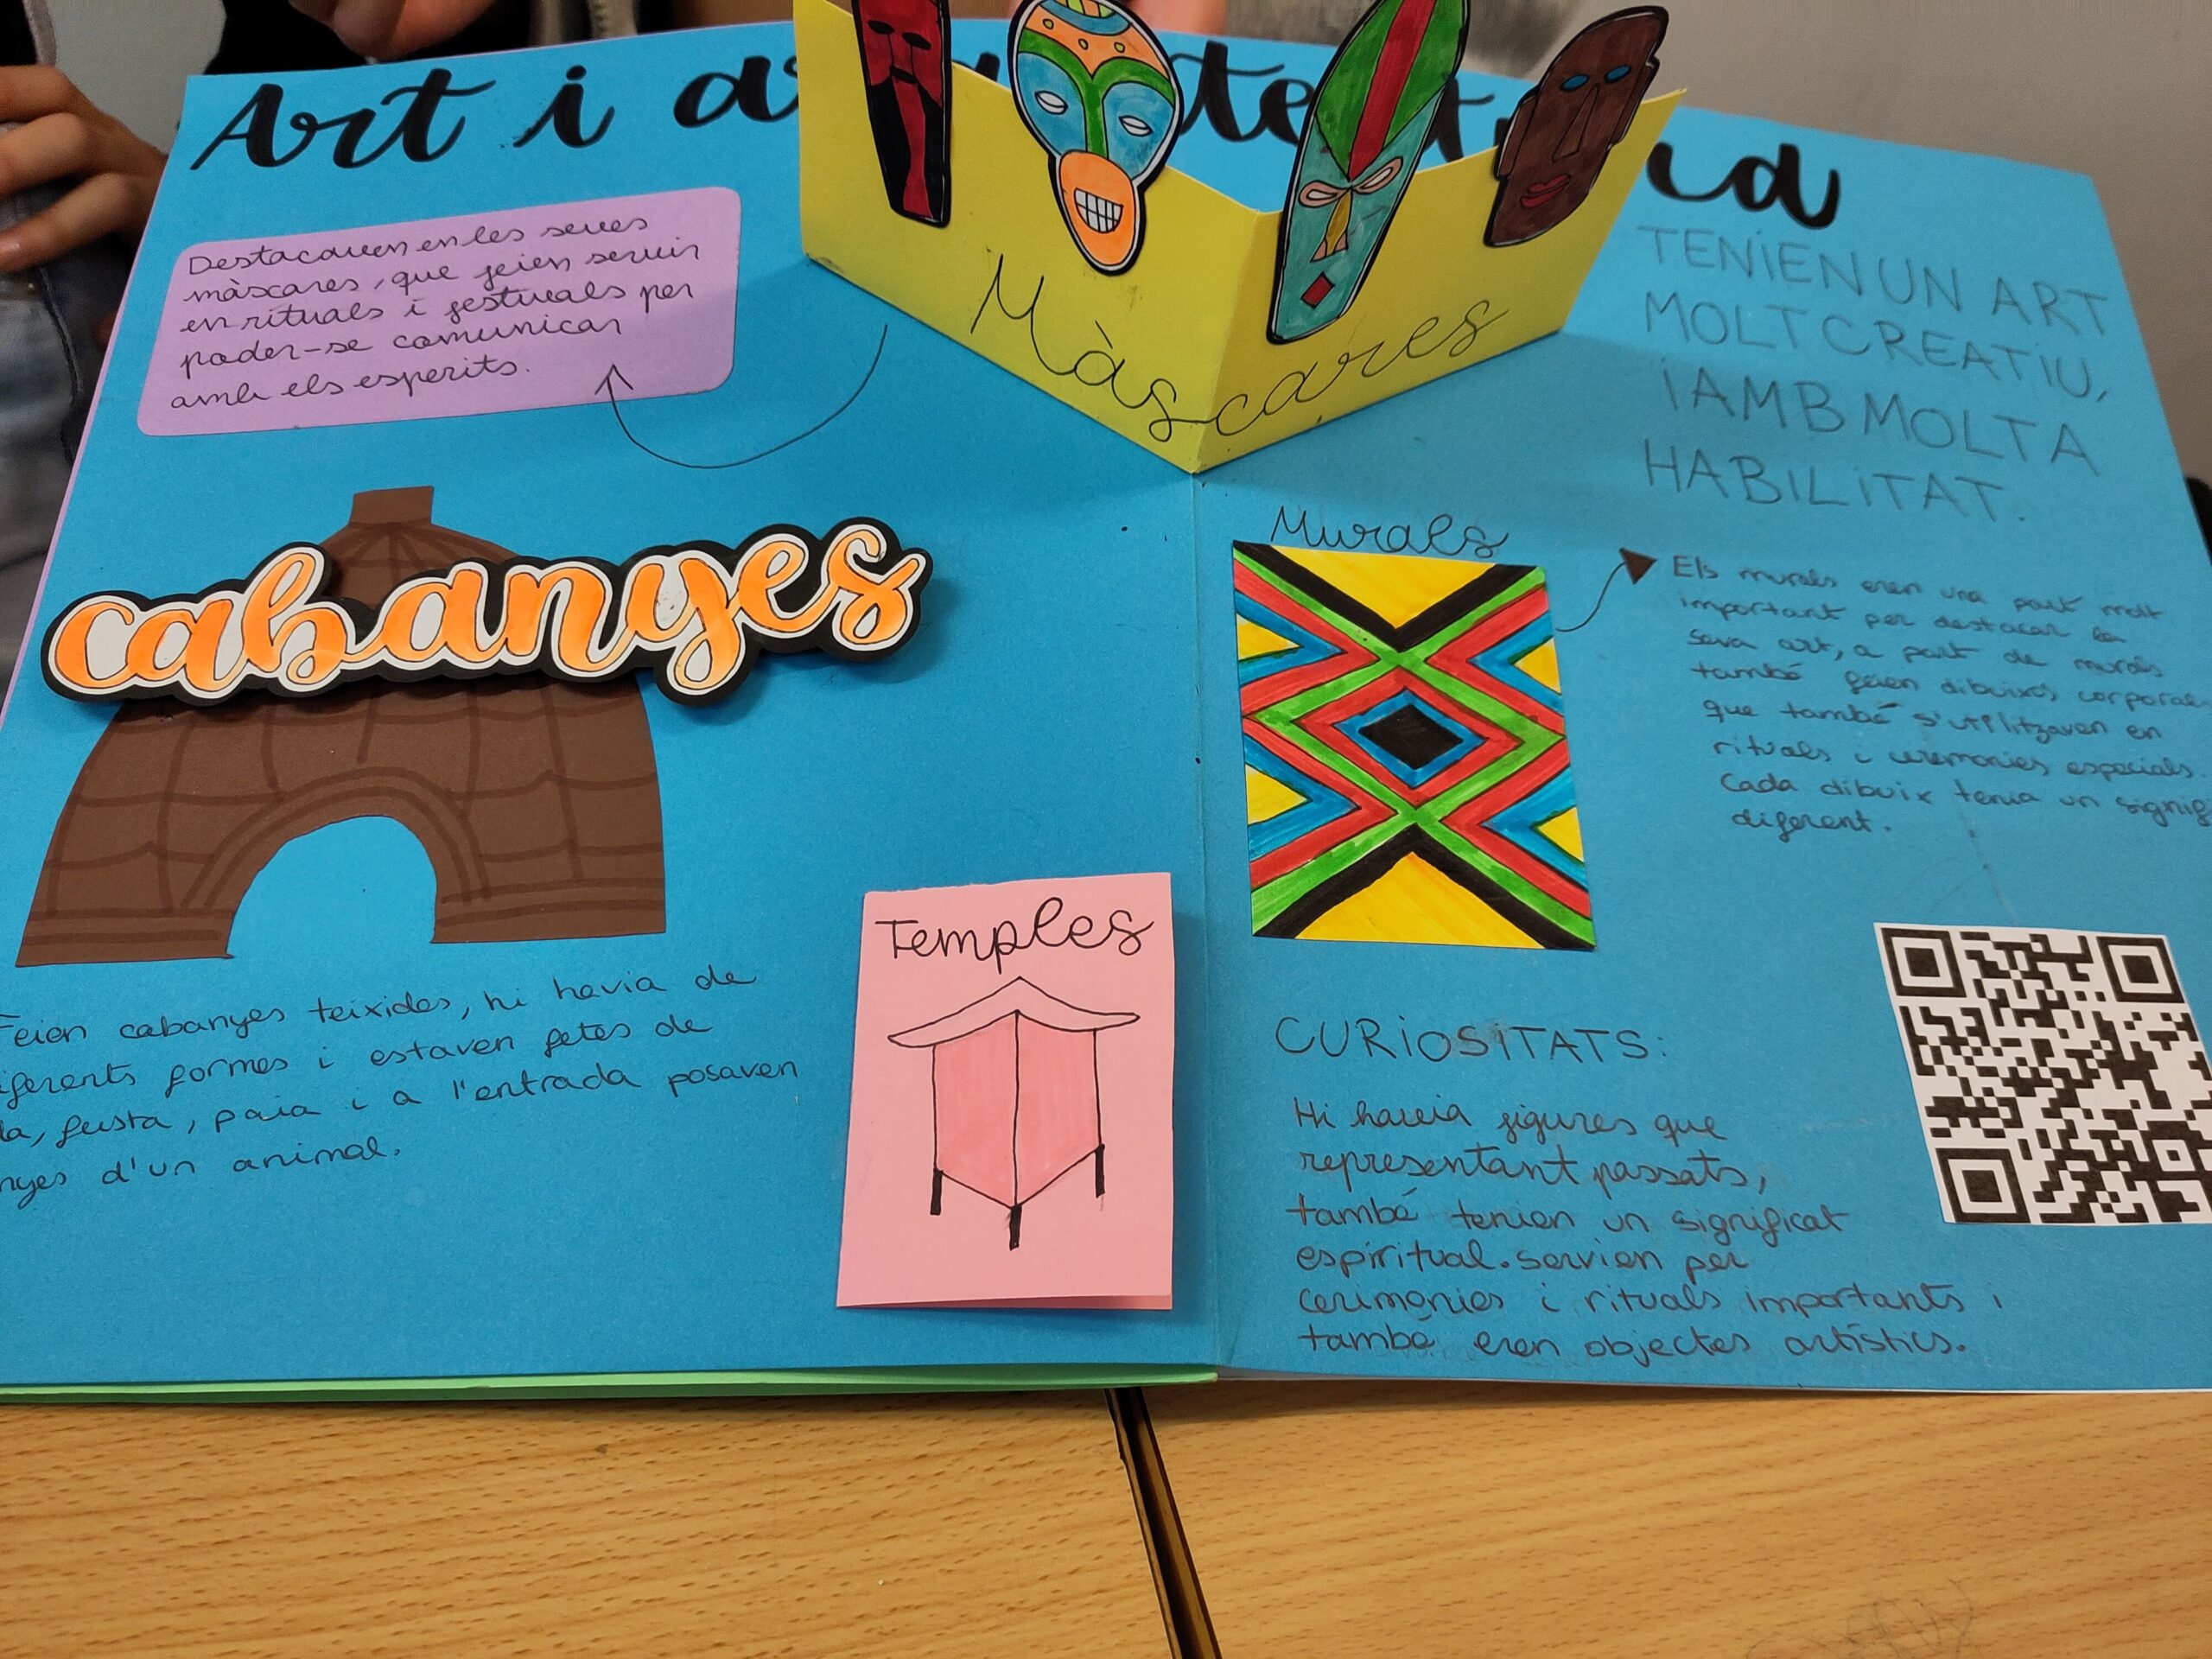 Art i
Destacauen en les seues
màscares, que feien seruir
en rituals i festiuals per
poder-se comunicar
amb els esperits.
Màscares
TENiEN UN ART
MOLT CREATiU,
i AMB MOLTA
HABiLiTAT.
cabanyes
Feien cabanyes teixides, hi havia de
iferents formes i estaven fetes de
fusta, paia i a l'entrada posaven
nyes d'un animal.
Temples
Murals
Els murals eren una part molt
important per destacar la
seva art, a part de murals
també feien dibuixos corporal
que també s'utilitzaven en
rituals i ceremonies especials.
Cada dibuix tenia un signif
diferent.
CURiOSITATS:
Hi haveia figures que
representant passats,
també tenien un significat
espiritual. servien per
cerimonies i rituals importants i
també eren objectes artístics.